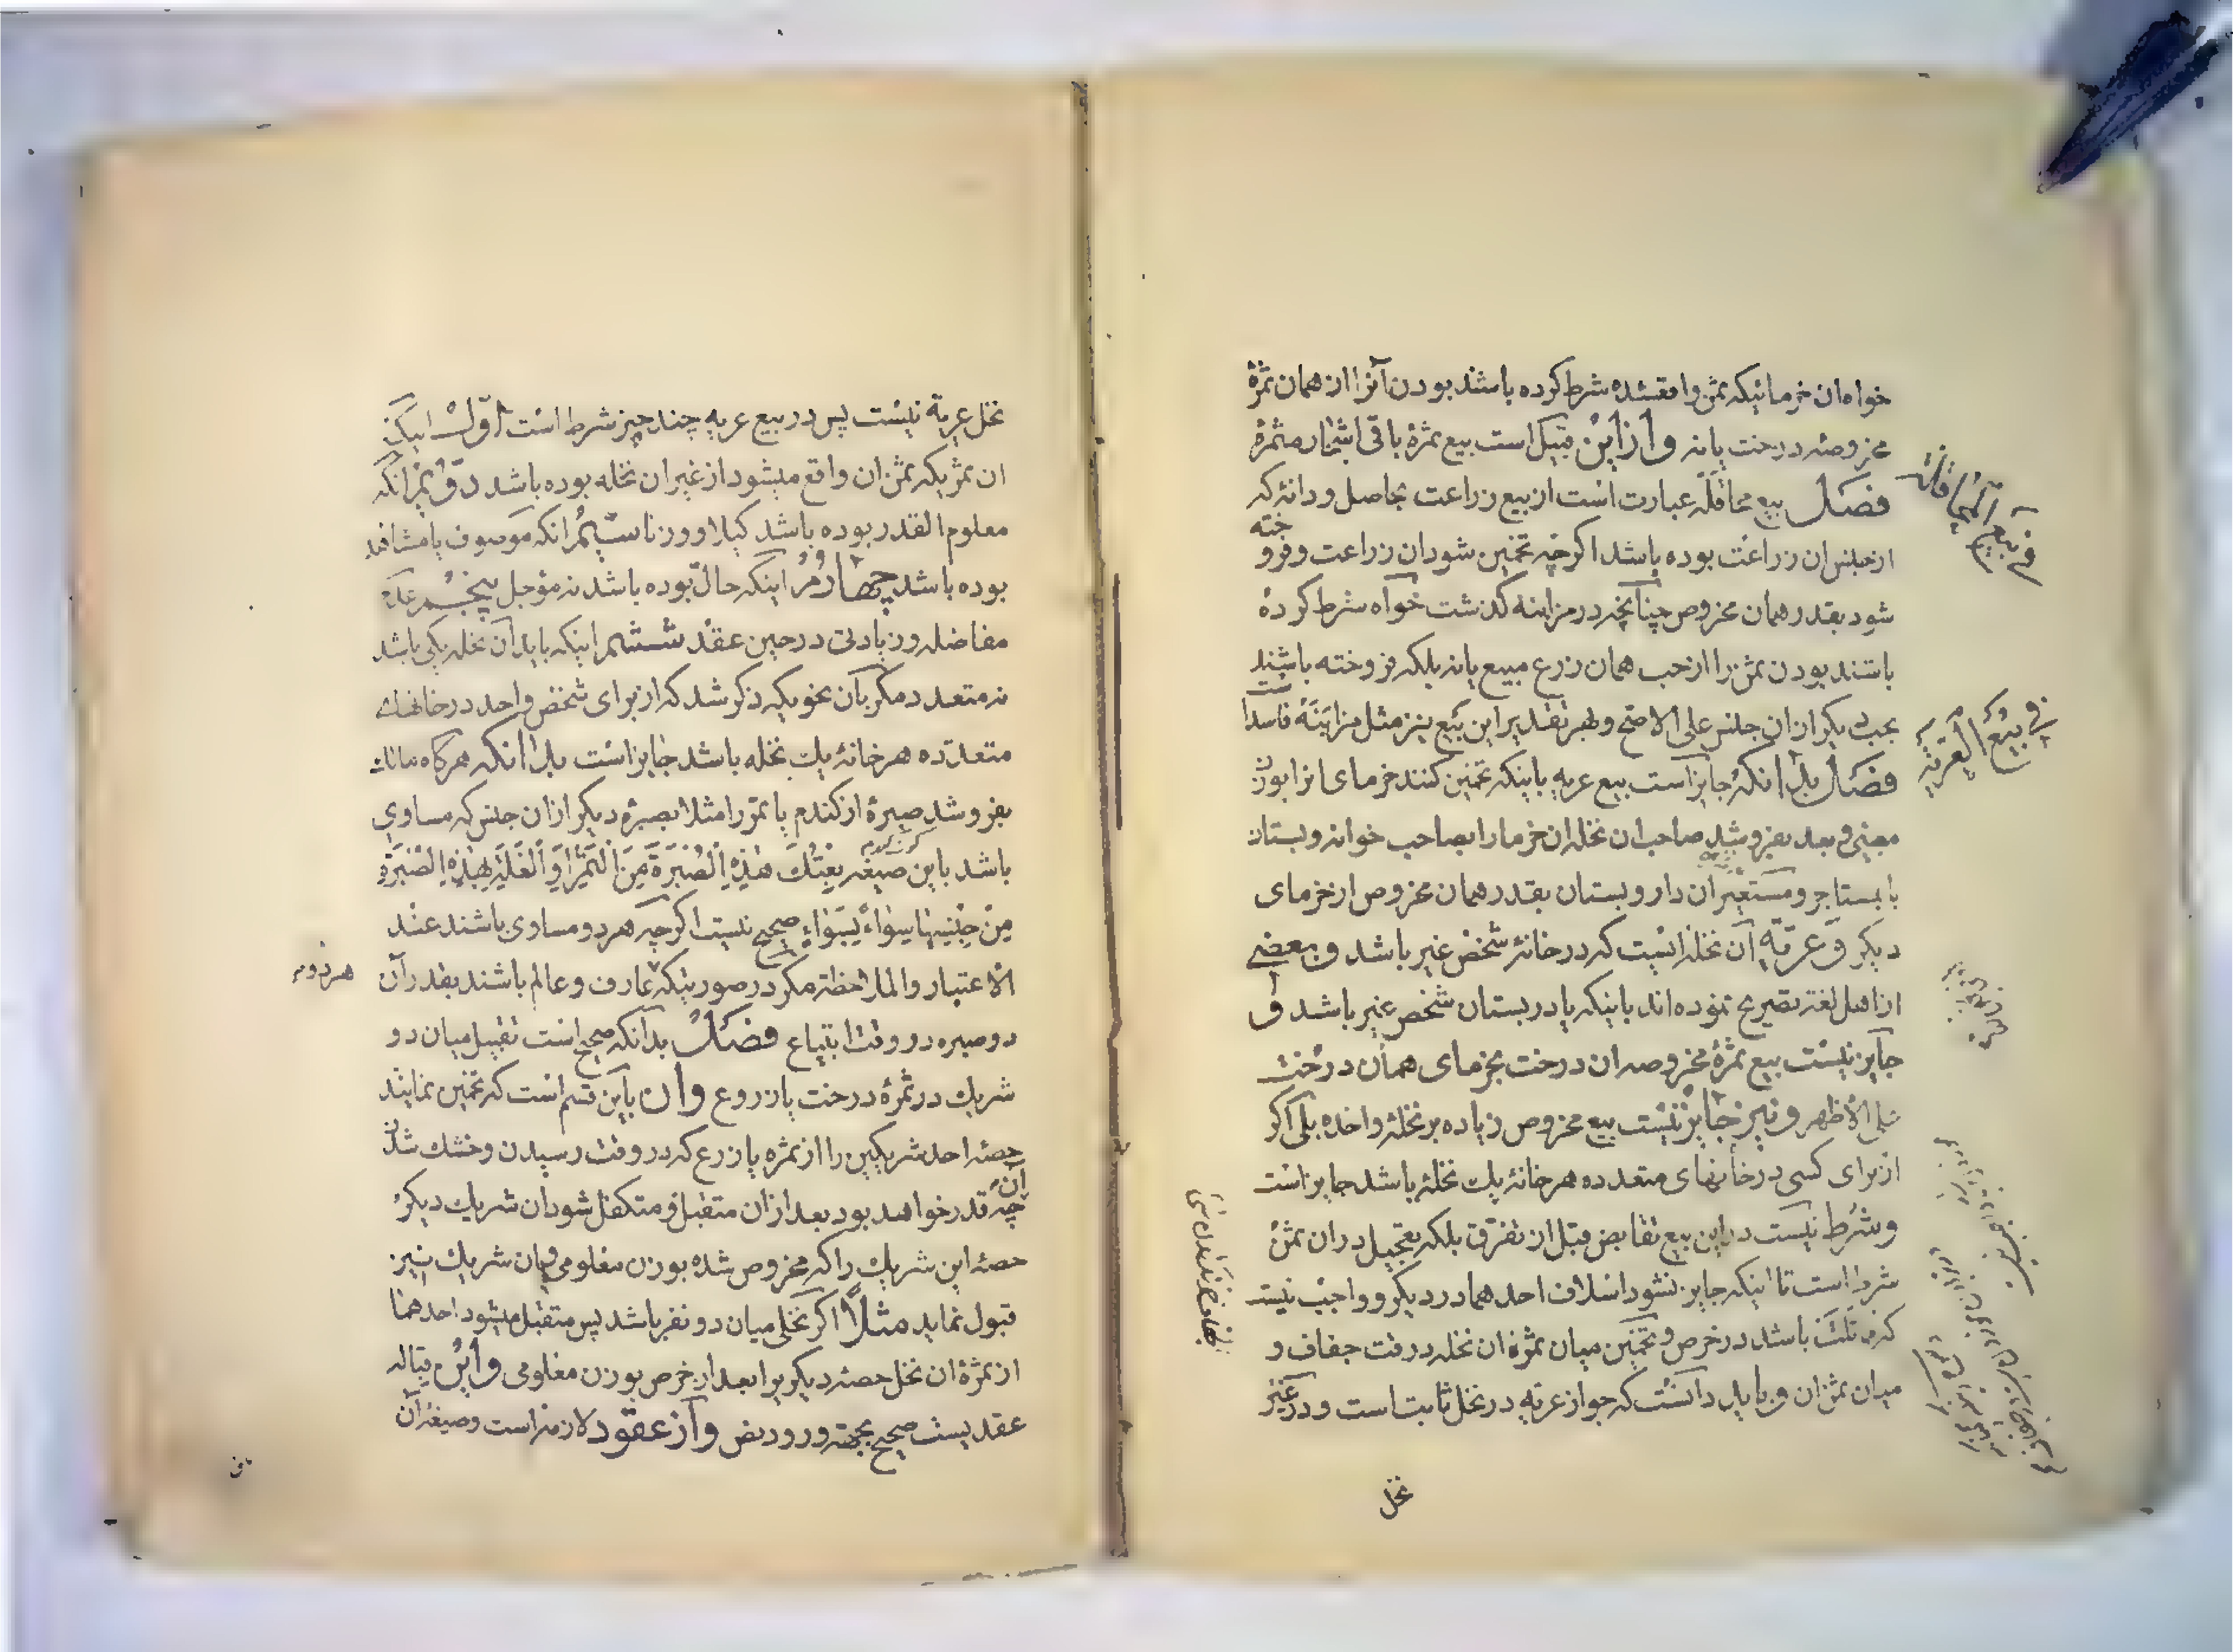 خواه ان خرمائیکه ثمن واقعشده شرط کرده باشند بودن آنرا از همان ثمرهٔ
مخروصه درخت یا نه و از این قبیل است بیع ثمرهٔ باقی اشجار مثمره
فصل بیع محاقله عبارت است از بیع زراعت بحاصل و دانهٔ که
از جنس ان زراعت بوده باشد اکرچه تخمین شود ان زراعت و فروخته
شود بقدر همان مخروص چنانچه در مزابنه کذشت خواه شرط کرده
باشند بودن ثمن را از حب همان زرع مبیع یا نه بلکه فروخته باشند
بحب دیکر از ان جنس علی الاصح و بهر تقدیر این بیع نیز مثل مزابنه فاسد است
فصل بدانکه جایز است بیع عریه باینکه تخمین کنند خرمای انرا بوزن
معینی و بعد بفروشد صاحب ان نخله ان خرما را بصاحب خوانه و بستان
یا بمستاجر و مستعیر ان دار و بستان بقدر همان مخروص از خرمای
دیکر و عریه آن نخله ایست که در خانهٔ شخص غیر باشد و بعضی
از اهل لغة تصریح نموده اند باینکه یا در بستان شخص غیر باشد و
جایز نیست بیع ثمرهٔ مخروصه ان درخت بخرمای همان درخت
علی الاظهر و نیز جایز نیست بیع مخروص زیاده بر نخلهٔ واحده بلی اکر
از برای کسی در خانهای متعدده هر خانهٔ یك نخله باشد جایز است
و شرط نیست در این بیع تقابض قبل از تفرق بلکه تعجیل در ان ثمن
شرط است تا اینکه جایز نشود اسلاف احدهما در دیکر و واجب نیست
که باشد در خرص و تخمین میان ثمرهٔ ان نخله در وقت جفاف و
میان ثمن ان و باید دانست که جواز عریه در نخل ثابت است و در غیر
نخل
فی بیع المحاقلة
فی بیع العریة
نخل عریة نیست پس در بیع عریه چند چیز شرط است اول اینکه
ان ثمریکه ثمن ان واقع میشود از غیر ان نخله بوده باشد دوم انکه
معلوم القدر بوده باشد کیلا او وزنا سیم انکه موصوف یا مشاهد
بوده باشد چهارم اینکه حال بوده باشد نه مؤجل پنجم عدم
مفاضله و زیادتی در حین عقد ششم اینکه باید آن نخله یکی باشد
نه متعدد مکر بآن نحویکه ذکر شد که از برای شخص واحد در خانهای
متعدده هر خانهٔ یك نخله باشد جایز است بدانکه هرکاه مالك
بفروشد صبرهٔ از کندم یا تمر را مثلا بصبرهٔ دیکر از ان جنس که مساوی
باشد باین صیغه بِعْتُكَ هٰذِهِ الصُّبْرَةَ مِنَ التَّمْرِ اَوِ الْغَلَّةِ بِهٰذِهِ الصُّبْرَةِ
مِنْ جِنْسِهَا سَوَاءً بِسَوَاءٍ صحیح نیست اکرچه هر دو مساوی باشند عند
الاعتبار والملاحظه مکر در صورتیکه عارف و عالم باشند بقدر آن
هر دو
دو صبره در وقت ابتیاع فصل بدانکه صحیح است تقبیل میان دو
شریك در ثمرهٔ درخت یا زروع و ان باین قسم است که تخمین نمایند
حصهٔ احد شریکین را از ثمره یا زرع که در وقت رسیدن و خشك شدن
آن چه قدر خواهد بود بعد از ان متقبل و متکفل شود ان شریك دیکر
حصهٔ این شریك را که مخروص شده بوزن معلومی و ان شریك نیز
قبول نماید مثلاً اکر نخلی میان دو نفر باشد پس متقبل میشود احدهما
از ثمرهٔ ان نخل حصهٔ دیکریرا بعد از خرص بوزن معلومی و این قباله
عقدیست صحیح بجهة ورود نص و از عقود لازمه است و صیغهٔ آن